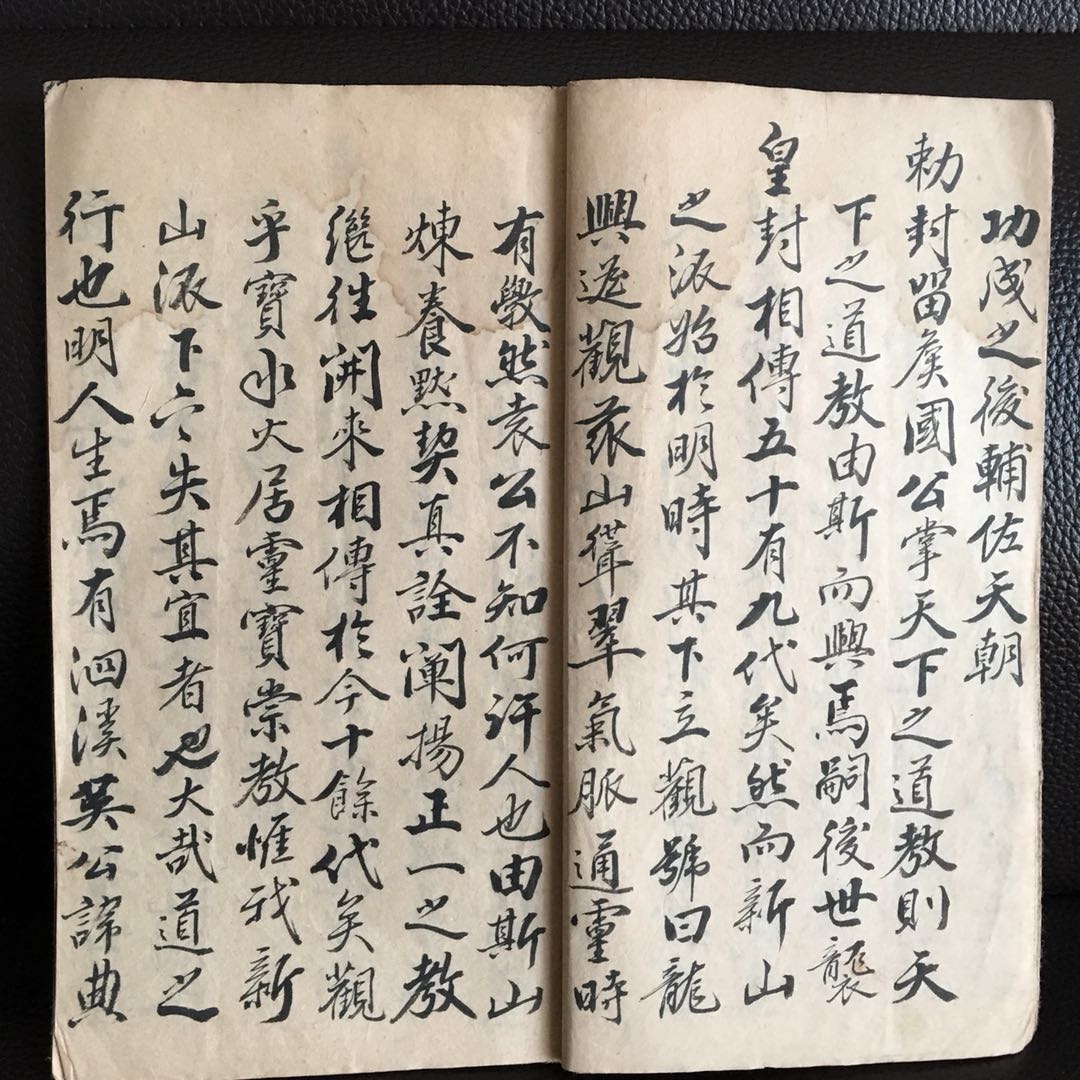 功成之後輔佐天朝
勅封留矦國公掌天下之道教則天
下之道教由斯而興焉嗣後世襲
皇封相傳五十有九代矣然而新山
之派始於明時其下立觀號曰龍
興遊觀茲山聳翠氣脈通靈時
有斆然袁公不知何許人也由斯山
煉養默契真詮闡揚正一之教
繼往開來相傳於今十餘代矣觀
乎寶水火居靈寶崇教惟我新
山派下亦失其宜者也大哉道之
行也明人生焉有泗溪吳公諱典